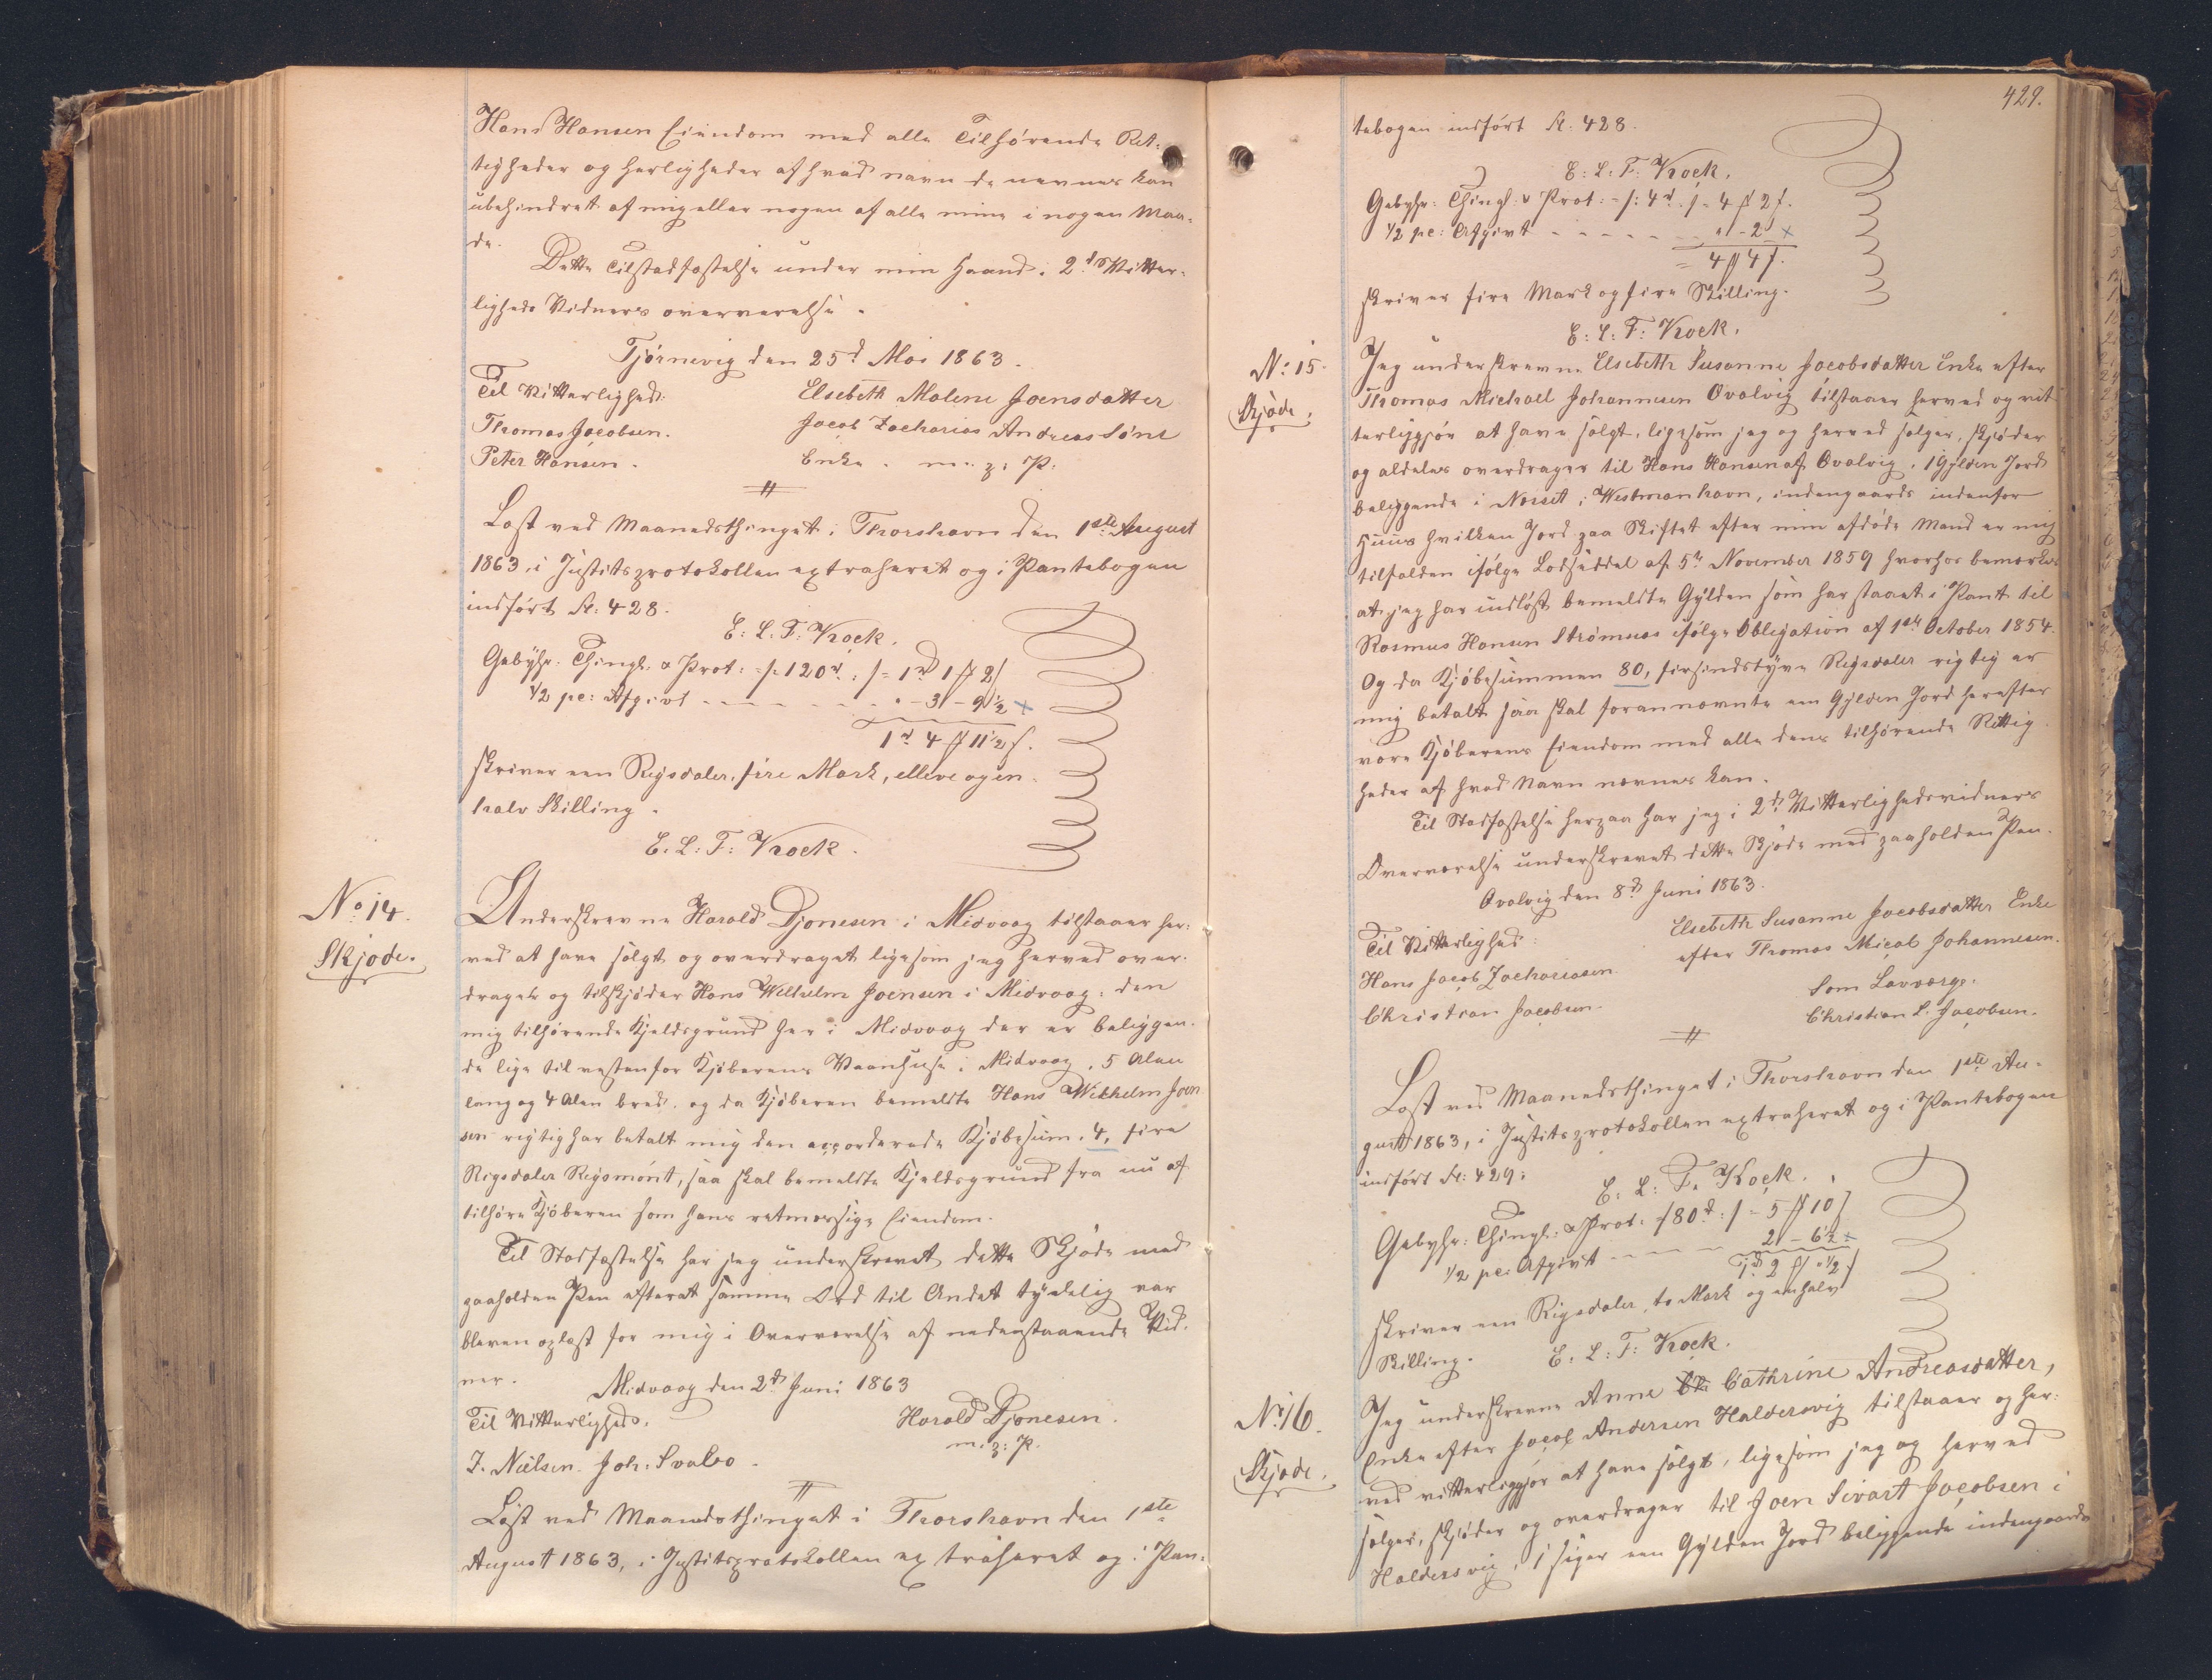 Hans Hansen Eiendom med alle Tilhørende Ret-
tigheder og Herligheder af hvad navn de nævnes kan
ubehindret af mig eller nogen af alle mine i nogen Maa-
de.
Dette Tilstadfæstelse under min Haand i 2de Vitter-
ligheds Vidners overværelse.
Tjørnevig den 25d Mai 1863.
Til Vitterlighed:
Elsebeth Malene Joensdatter
Thomas Jacobsen.
Jacob Zacharias Andreas Søns
Peter Hansen.
Enke. m: p: P:
Læst ved Maanedsthinget i Thorshavn den 1ste August
1863, i Justitsprotokollen extraheret og i Pantebogen
indført Fol: 428.
E: L: F: Krock.
Gebyhr: Thingl: & Prot: -/: 120rd :/ = 1rd 1 ß 2/
1/2 pc: Afgivt - - - - - - " - 3 - 9 1/2 +
1rd 4 ß 11 1/2 ſ.
skriver een Rigsdaler, fire Mark, elleve og en
halv Skilling.
E: L: F: Krock.
No 14.
Skjøde.
Underskrevne Harald Djonesen i Midvaag tilstaaer her-
ved at have solgt og overdraget ligesom jeg herved over-
drager og tilskjøder Hans Wilhelm Joensen i Midvaag: den
mig tilhørende Kjeldsgrund her i Midvaag der er beliggen-
de lige til vestenfor Kjøberens Vaanhuse i Midvaag, 5 Alen
lang og 4 Alen bred. og da Kjøberen bemeldte Hans Wilhelm Joen
sen rigtig har betalt mig den accorderede Kjøbesum, 4, fire
Rigsdaler Rigsmønt, saa skal bemeldte Kjeldsgrund fra nu af
tilhøre Kjøberen som hans retmæssige Eiendom.
Til Stadfæstelse har jeg underskrevet dette Skjøde med
paaholden Pen efterat samme Ord til Andet tydelig var
bleven oplæst for mig i Overværelse af nedenstaaende Vid-
ner.
Midvaag den 2d Juni 1863
Til Vitterlighed.
Harald Djonesen.
m: p: P.
J. Nielsen. Joh: Svabo.
Læst ved Maanedsthinget i Thorshavn den 1ste
August 1863, i Justitsprotokollen extraheret og i Pan-
429.
tebogen indført Fol: 428.
E: L: F: Krock.
Gebyhr: Thingl: & Prot: -/: 4rd :/ - 4 ß 2 ſ.
1/2 pc: Afgivt - - - - - " - 2 +
= 4 ß 4 ſ.
skriver fire Mark og fire Skilling.
E: L: F: Krock.
No: 15.
Skjøde.
Jeg underskrevne Elsebeth Susanne Jacobsdatter Enke efter
Thomas Michael Johannesen Qvalvig tilstaaer herved og vit
terliggjør at have solgt, ligesom jeg og herved sælger, skjøder
og aldeles overdrager til Hans Hansen af Qvalvig, 1 Gylden Jord
beliggende i Norset i Westmanhavn, indengaards indenfor
Huus hvilken Jord paa Skiftet efter min afdøde Mand er mig
tilfalden ifølge Lodseddel af 5te November 1859 hvorhos bemærkes
at jeg har indløst bemeldte Gylden som har staaet i Pant til
Rasmus Hansen Strømnæs ifølge Obligation af 1ste October 1854.
Og da Kjøbesummen 80, firsindstyve Rigsdaler rigtig er
mig betalt saa skal forannævnte een Gylden Jord herefter
være Kjøberens Eiendom med alle dens tilhørende Rettig
heder af hvad Navn nævnes kan.
Til Stadfæstelse herpaa har jeg i 2de Vitterlighedsvidners
Overværelse underskrevet dette Skjøde med paaholden Pen.
Qvalvig den 8d Juni 1863.
Til Vitterlighed:
Elsebeth Susanne Jacobsdatter Enke
Hans Jacob Zachariasen.
efter Thomas Mical Johannesen.
Christian Jacobsen.
Som Lavværge.
Christian L. Jacobsen.
Læst ved Maanedsthinget i Thorshavn den 1ste Au-
gust 1863, i Justitsprotokollen extraheret og i Pantebogen
indført Fol: 429:
E: L: F: Krock.
Gebyhr: Thingl: & Prot: -/80d :/ = 5 ß 10 ſ
1/2 pc: Afgivt - - - - 2 - 6 1/2 +
1rd 2 ß " 1/2 ſ
skriver een Rigsdaler, to Mark og en halv
Skilling.
E: L: F: Krock.
No 16.
Skjøde.
Jeg underskrevne Anne Cathrine Andreasdatter,
Enke efter Jacob Andersen Haldersvig tilstaaer og her-
ved vitterliggjør at have solgt, ligesom jeg og herved
sælger, skjøder og overdrager til Joen Sivart Jacobsen i
Haldersvig, 1 siger een Gylden Jord beliggende indengaards